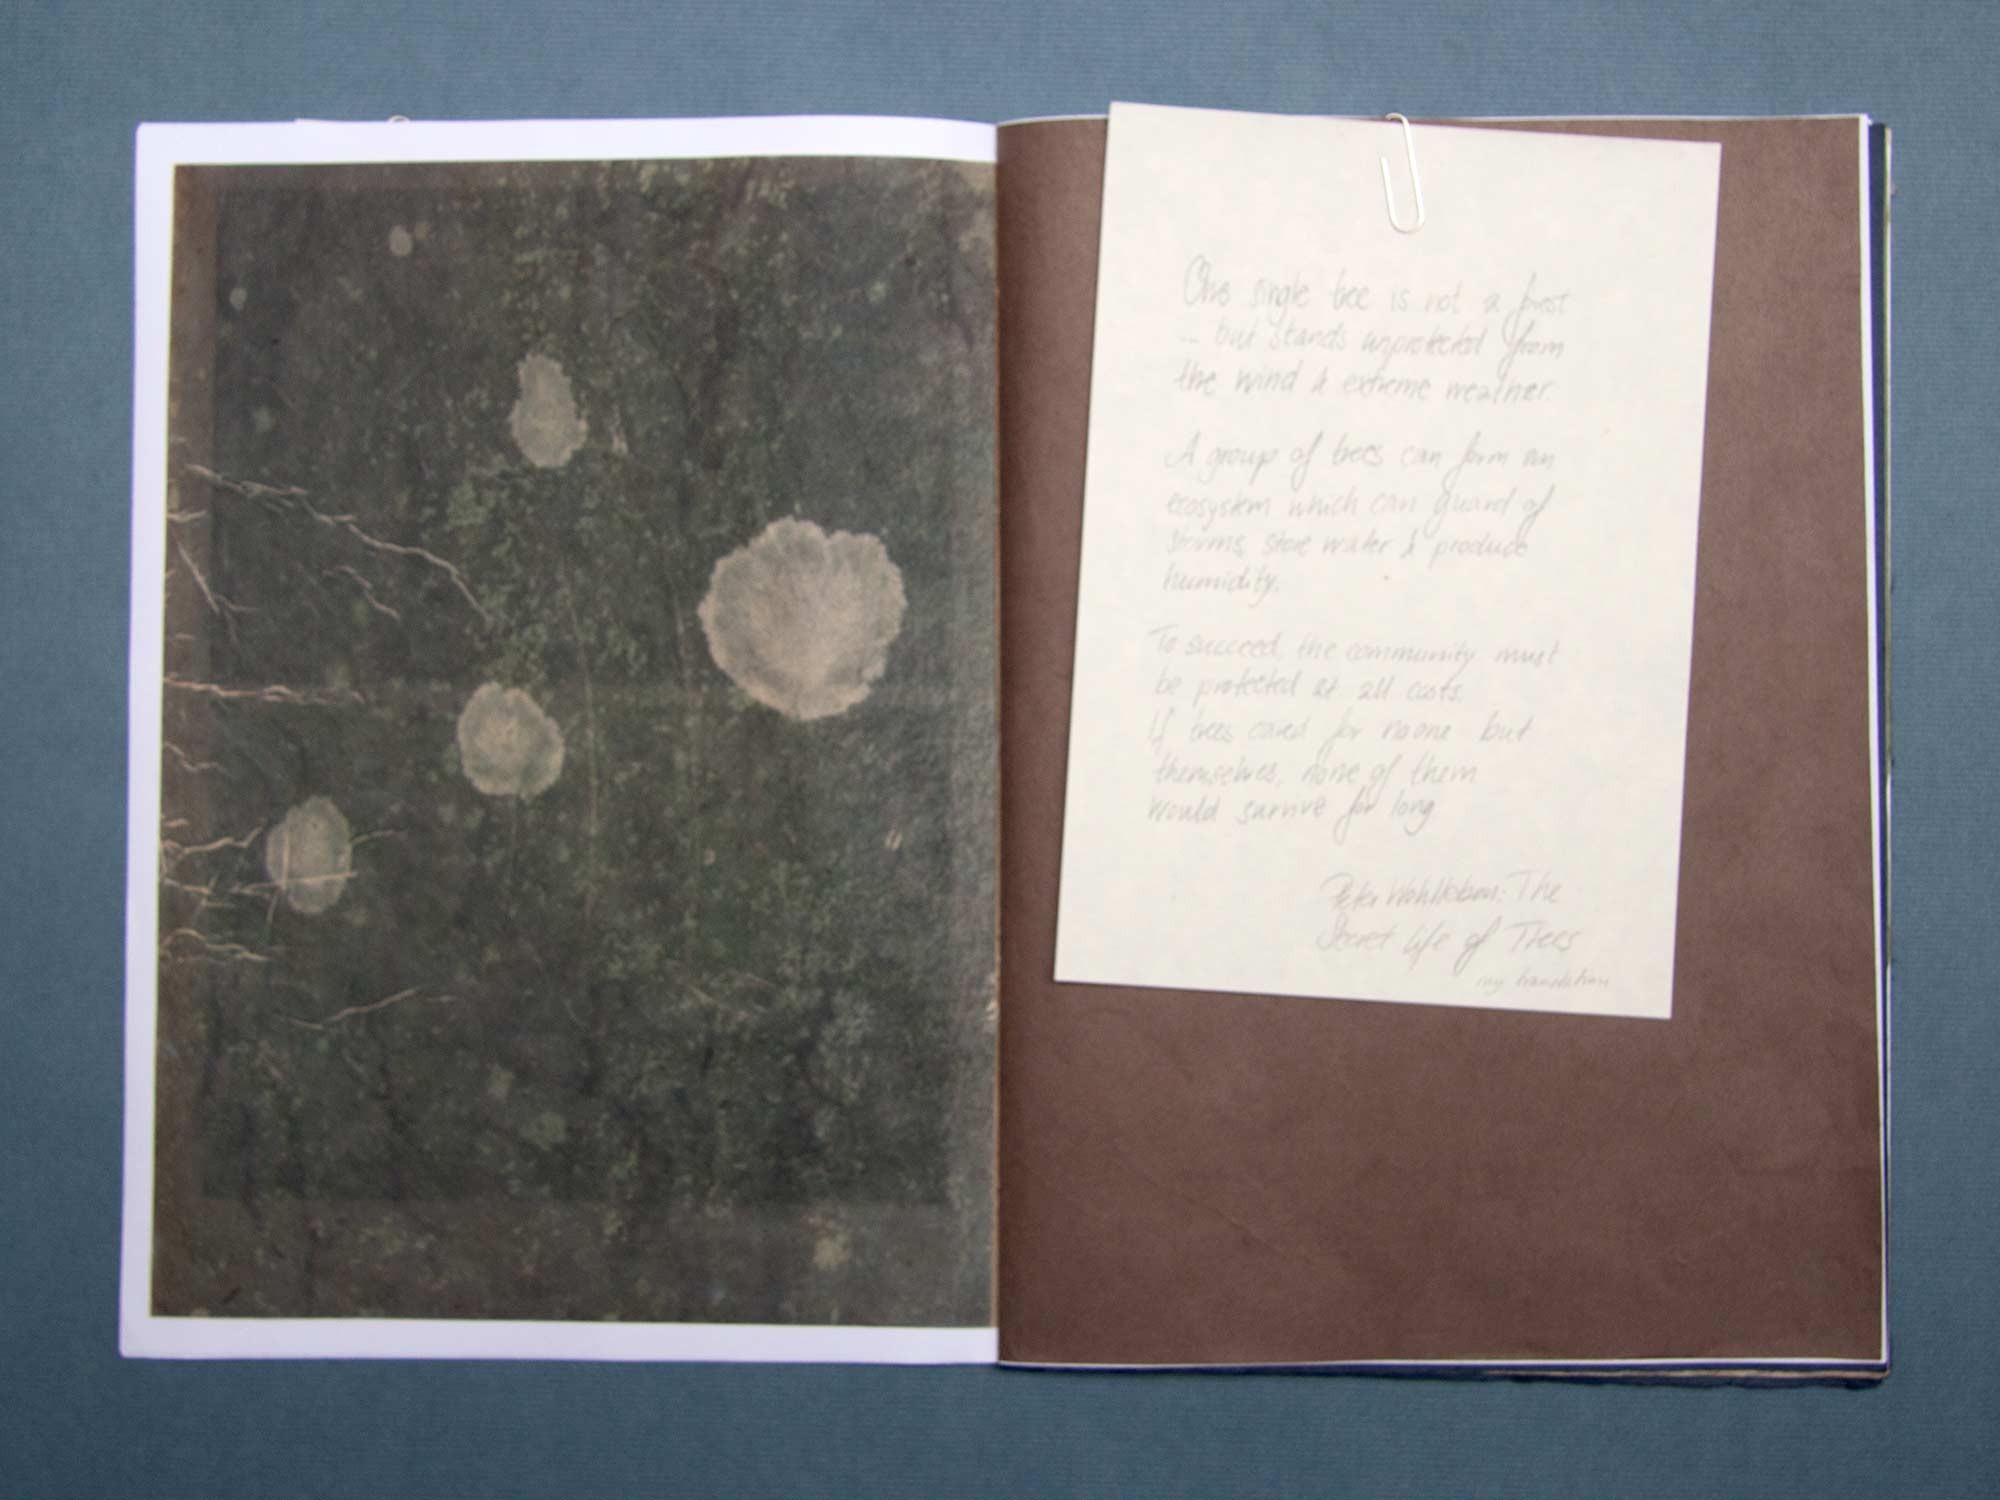 One single tree is not a forest
... but stands unprotected from
the wind & extreme weather.
A group of trees can form an
ecosystem which can guard of
storms, store water & produce
humidity.
To succeed, the community must
be protected at all costs.
If trees cared for no one but
themselves, none of them
would survive for long
Peter Wohlleben: The
Secret life of Trees
my translation